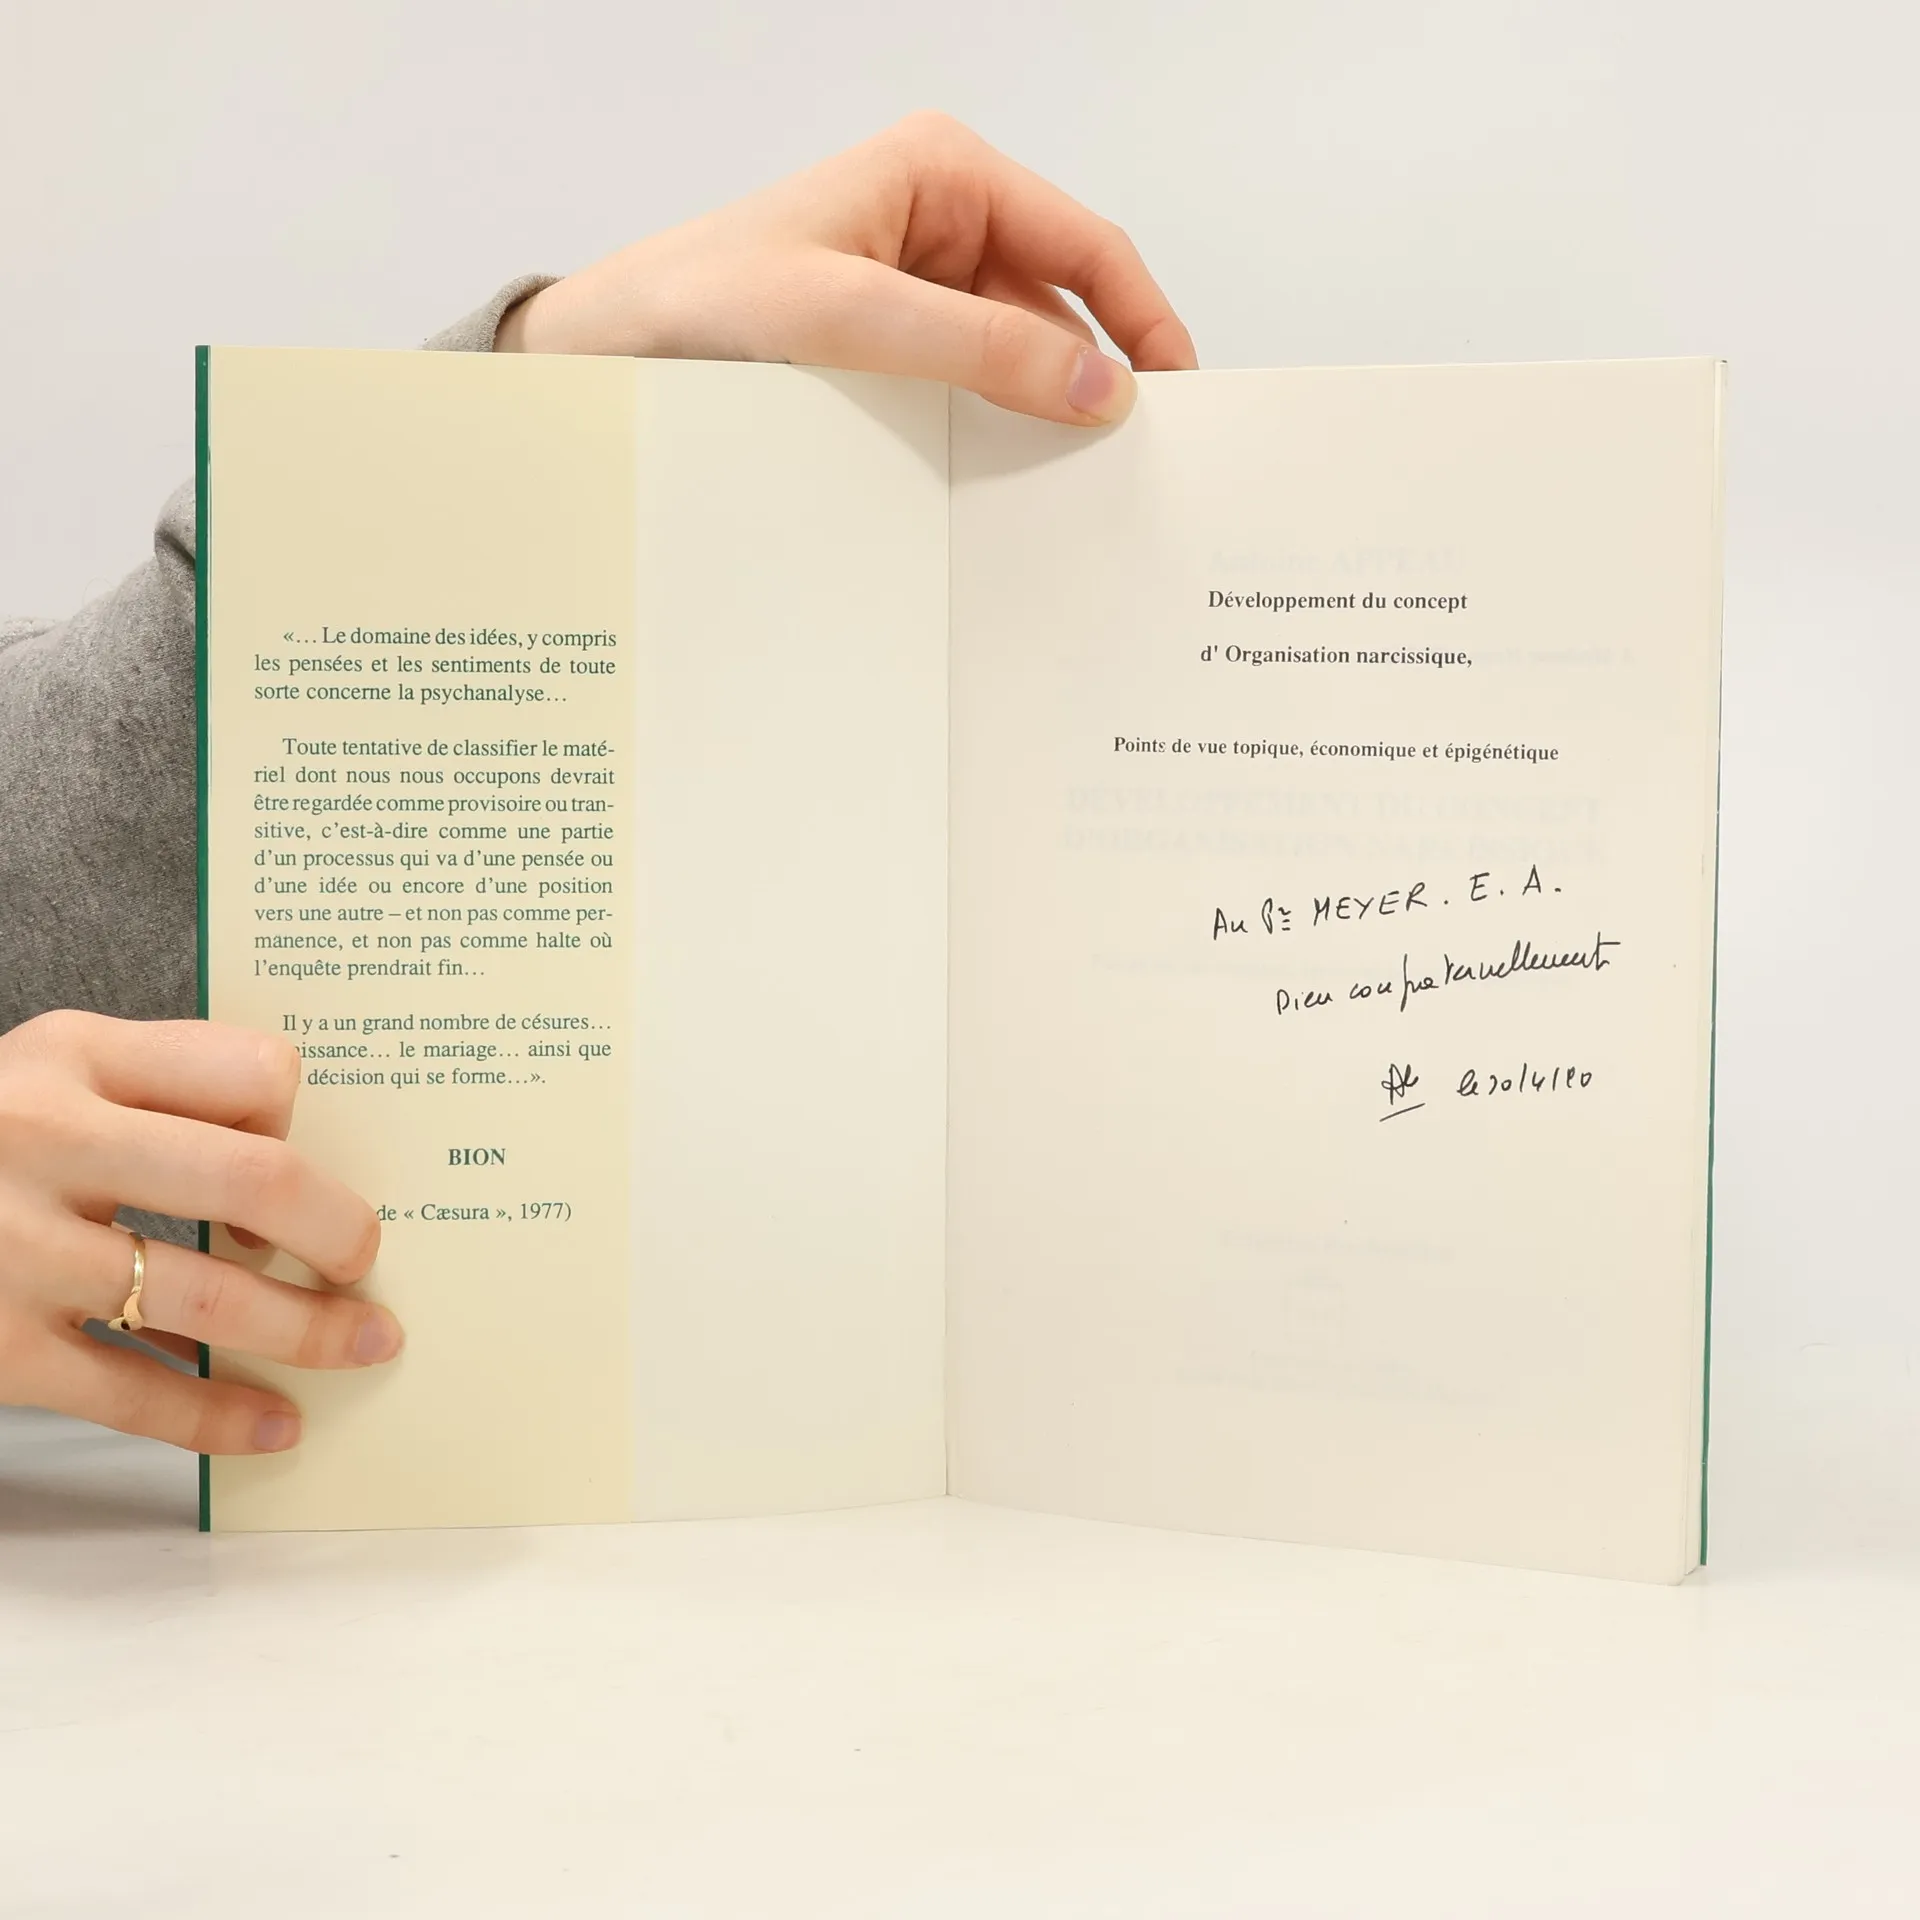 «... Le domaine des idées, y compris
les pensées et les sentiments de toute
sorte concerne la psychanalyse...
Toute tentative de classifier le maté-
riel dont nous nous occupons devrait
être regardée comme provisoire ou tran-
sitive, c'est-à-dire comme une partie
d'un processus qui va d'une pensée ou
d'une idée ou encore d'une position
vers une autre – et non pas comme per-
manence, et non pas comme halte où
l'enquête prendrait fin...
Il y a un grand nombre de césures...
issance... le mariage... ainsi que
décision qui se forme...».
BION
de « Cæsura », 1977)
Développement du concept
d' Organisation narcissique,
Points de vue topique, économique et épigénétique
Au Pr MEYER. E. A.
Bien confraternellement
le